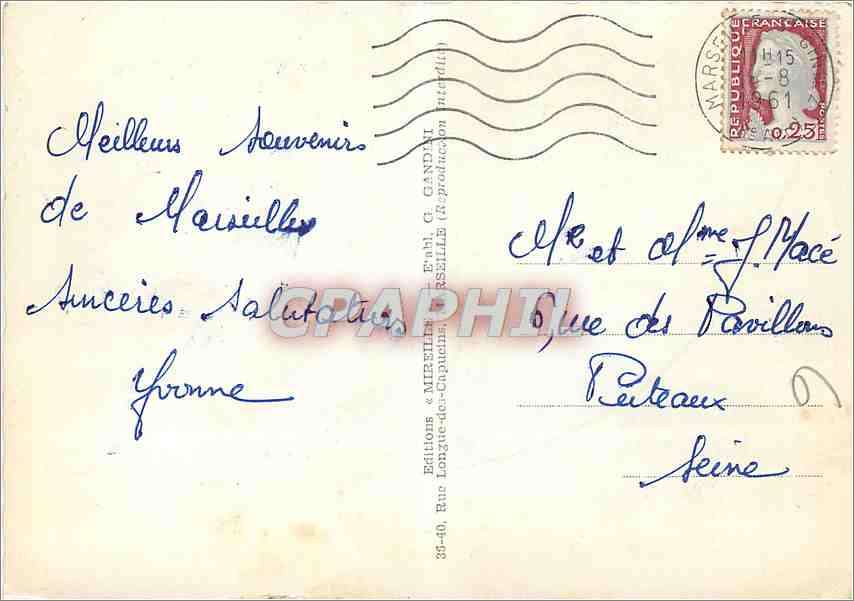 Meilleurs souvenirs
de Marseille
sincères salutations
Yvonne
Editions « MIREILLE » — Etabl. G. GANDINI
35-40, Rue Longue-des-Capucins, MARSEILLE (Reproduction Interdite)
CPAPHIL
RÉPUBLIQUE FRANÇAISE
0,25
POSTES
MARSEILLE
15
-8
1961
Mr et Mme J. Macé
6, rue des Pavillons
Puteaux
Seine